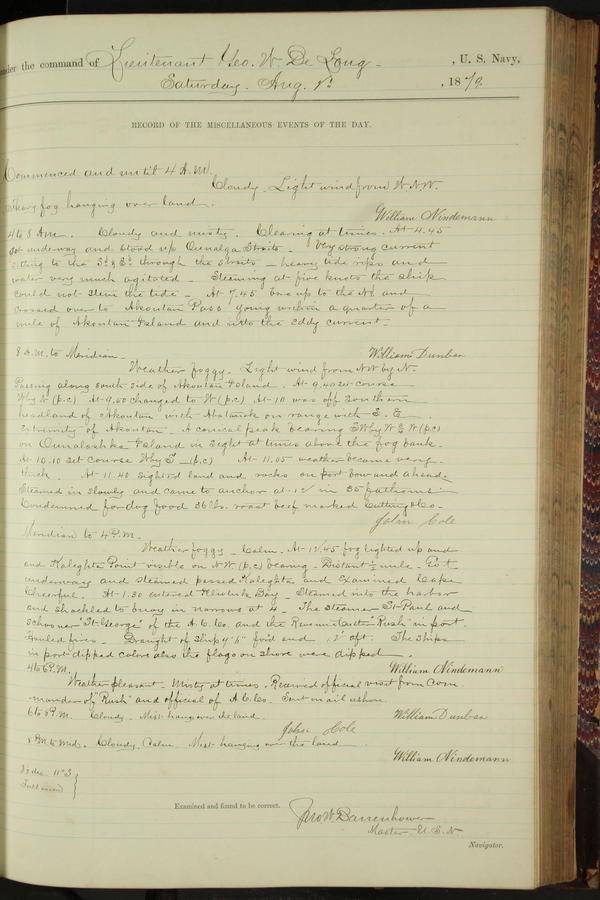 under the command of Lieutenant Geo. W. De Long , U. S. Navy,
Saturday. Aug. 2d , 1879
RECORD OF THE MISCELLANEOUS EVENTS OF THE DAY.
Commenced and until 4 A.M.
Cloudy. Light wind from W.N.W.
fog hanging over land.
William Nindemann
4 to 8 A.M. Cloudy and misty. Clearing at times. At 4.45
Got underway and stood up Straits. Very strong current
setting to the through the Straits - heavy tide rips and
water very much agitated. Steaming at five knots the ship
could not stem the tide - At 7.45 bore up to the and
crossed over to Akoutan Pass going within a quarter of a
mile of Akoutan Island and into the eddy current -
8 A.M. to Meridian -
William Dunbar
Weather foggy. Light wind from NW by N.
Passing along south side of Akoutan Island. At 9.40 set course
(p.c) At 9.50 changed to W (p.c) At 10 was off Southern
headland of Akoutan with on range with S. E.
extremity of Akoutan - A conical peak bearing (p.c)
on Ounalashka Island in sight at times above the fog bank.
At 10.10 set course (p.c) At 11.05 weather became very
thick. At 11.40 sighted land and rocks on port bow and ahead.
Steamed in slowly and came to anchor at in 35 fathoms
Condemned for dog food 36 lbs. roast beef marked Cutting & Co.
John Cole
Meridian to 4 P.M.
Weather foggy - Calm. At 12.45 fog lighted up and
and Kaleghta Point visible on N.W. (p.c) bearing - Distant ½ mile. Got
underway and steamed passed Kaleghta and examined Cape
Cheerful. At 1.30 entered Iliuliuk Bay - Steamed into the harbor
and shackled to buoy in narrows at 4. The Steamer St. Paul and
schooner "St. George" of the A. C. Co. and the Revenue Cutter "Rush" in port.
Hauled fires - Draught of Ship 9' 6" for'd and 13' aft. The Ships
in port dipped colors also the flags on shore were dipped.
4 to 6 P.M.
William Nindemann
Weather pleasant. Misty at times. Received official visit from Com-
-mander of "Rush" and official of A. C. Co. Sent mail ashore.
6 to 8 P.M. Cloudy. Mist hung over the land.
William Dunbar
John Cole
8 P.M. to Mid. Cloudy. Calm. Mist hanging over the land.
William Nindemann
Examined and found to be correct.
Jno W. Danenhower
Master U.S.N.
Navigator.